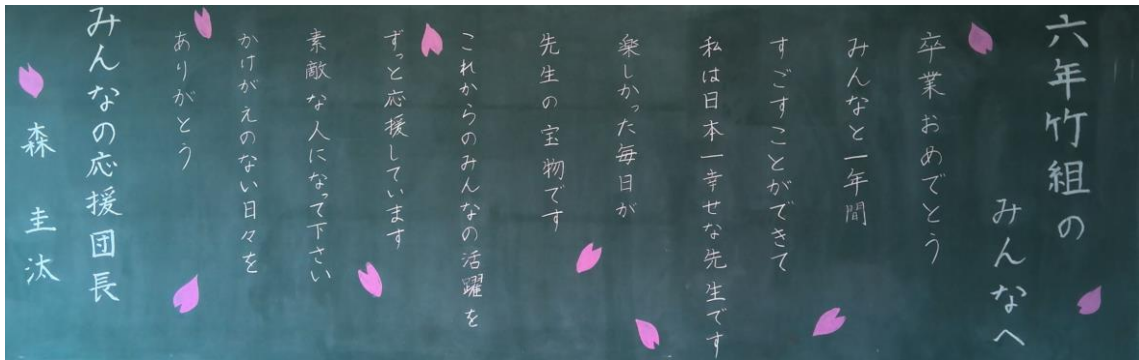 六年竹組の
みんなへ
卒業おめでとう
みんなと一年間
すごすことができて
私は日本一幸せな先生です
楽しかった毎日が
先生の宝物です
これからのみんなの活躍を
ずっと応援しています
素敵な人になって下さい
かけがえのない日々を
ありがとう
みんなの応援団長
森圭汰